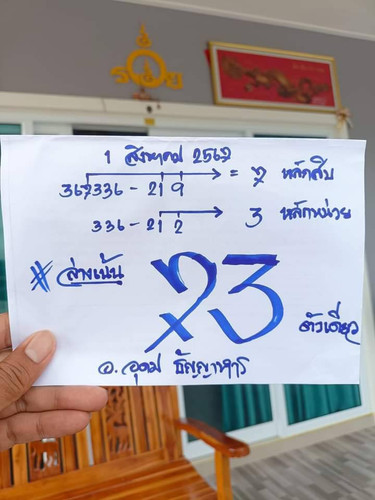 1 สิงหาคม 2567
367336 - 219 = 7 หลักสิบ
336 - 212 3 หลักหน่วย
# ล่างเน้น
73
ตัวเดียว
อ. อุดม ธัญญาหาร